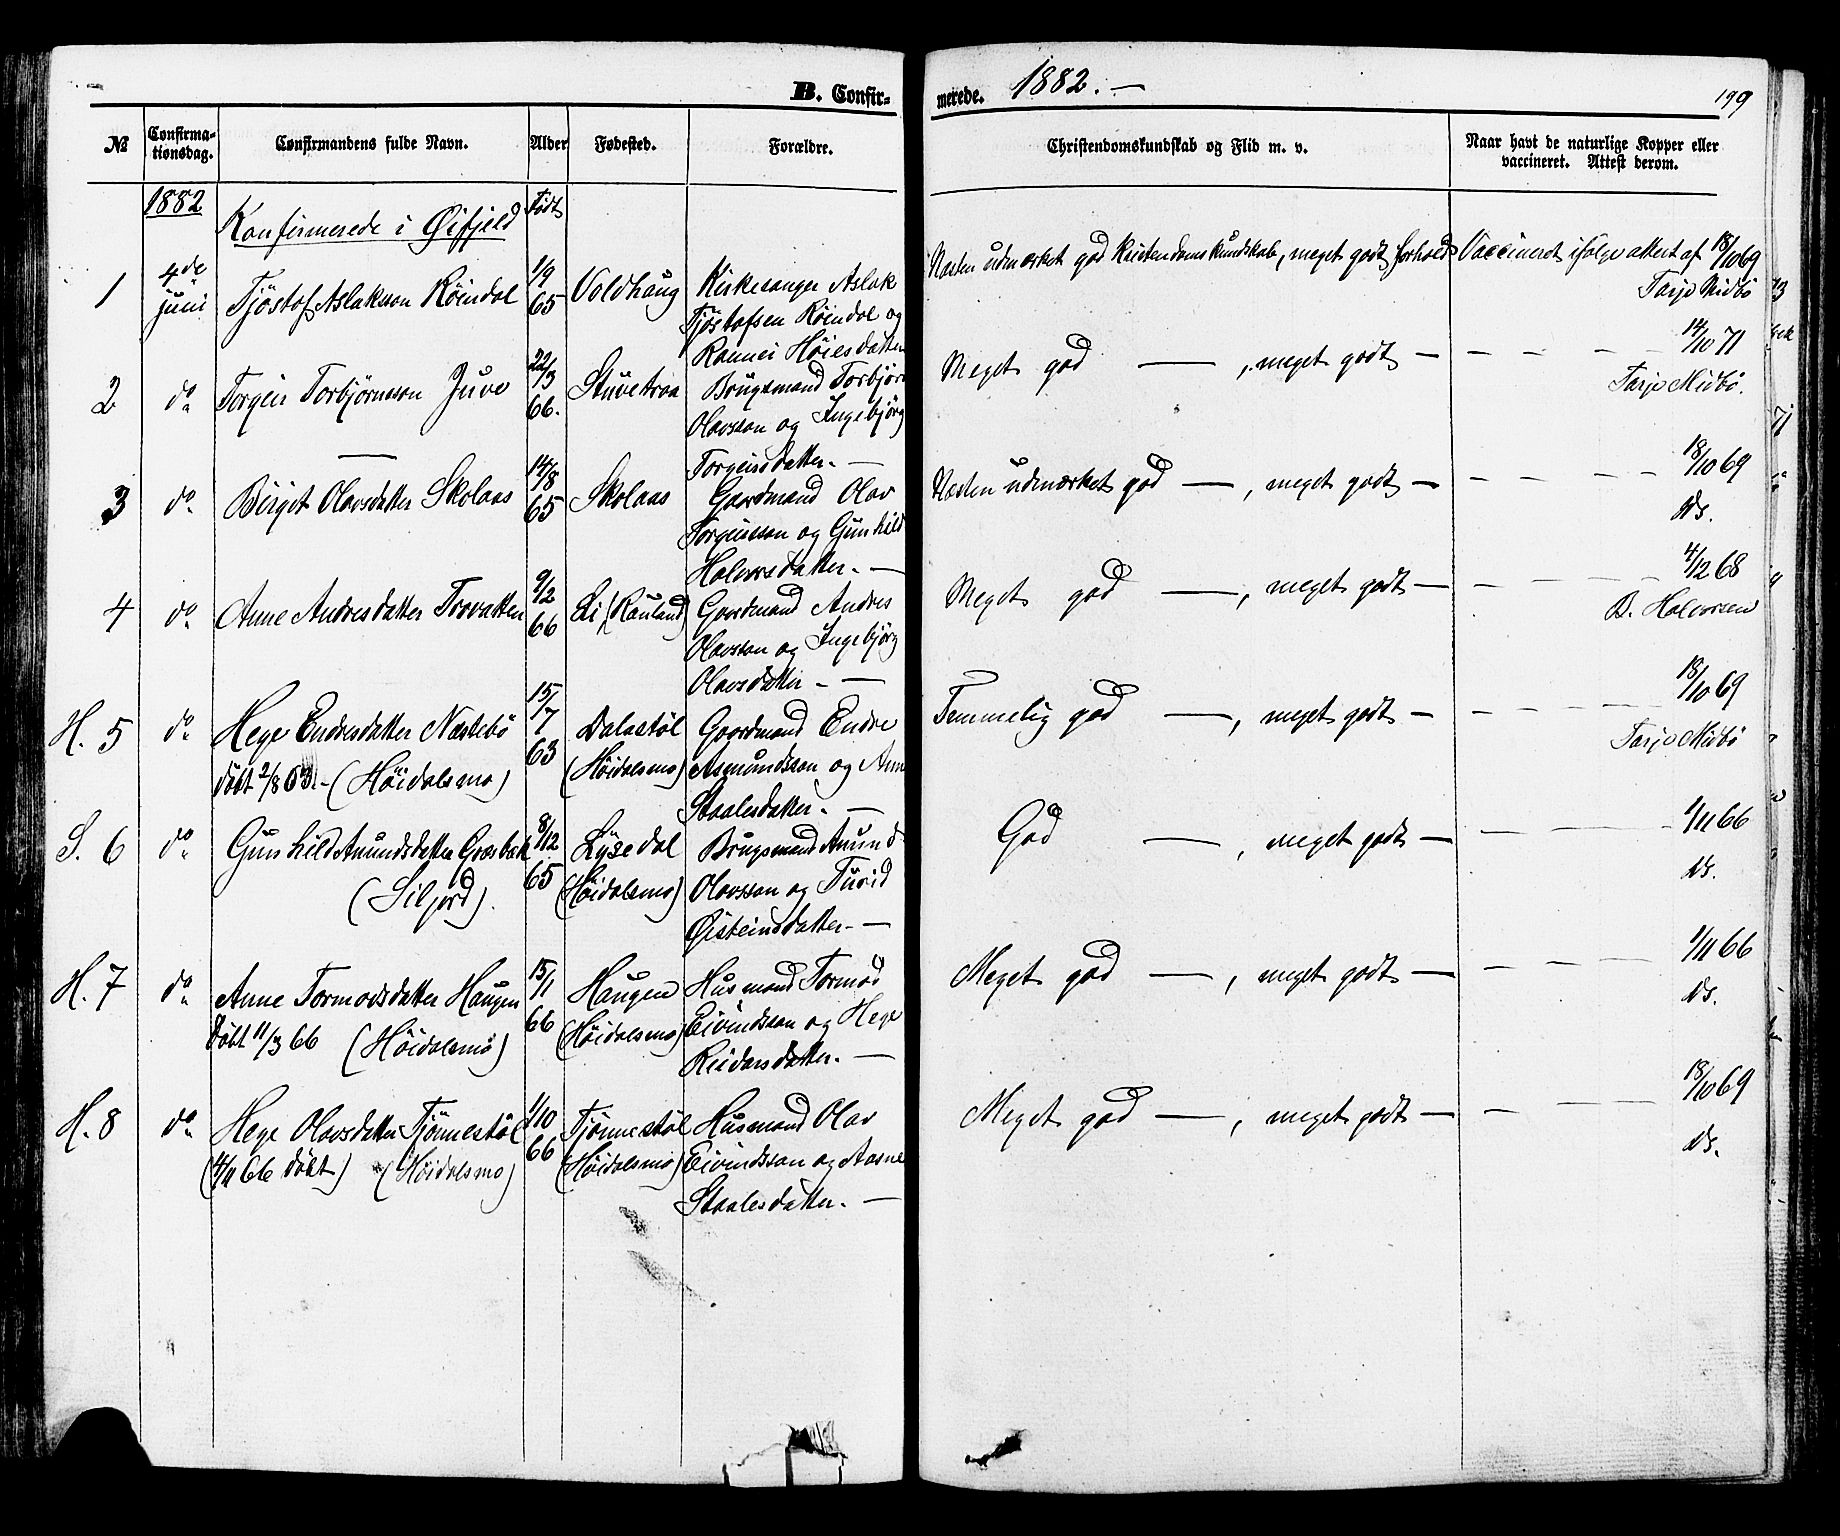 B. Confir-
merede. 1882. —
199
№
Confirma-
tionsdag.
Confirmandens fulde Navn.
Alder
Fødested.
Forældre.
Christendomskundskab og Flid m. v.
Naar havt de naturlige Kopper eller
vaccineret. Attest derom.
1882
Konfirmerede i Øifjeld
Født
1
4de
juni
Tjöstof Aslakson Röindal
1/9
65
Voldhaug
Kirkesanger Aslak
Tjöstofsen Röindal og
Ronnei Höiesdatter
Næsten udmærket god Kristendomskundskab, meget godt forhold
Vaccineret ifølge attest af 18/10 69
Tarje Midbö
2
do
Torgeir Torbjörnsson Juve
22/3
66.
Stuvetraa
Brugsmand Torbjörn
Olavsson og Ingebjörg
Torgeirsdatter. —
Meget god — , meget godt —
— — — — 14/10 71
Tarje Midbö.
3
do
Birgit Olavsdatter Skolaas
14/8
65
Skolaas
Gaardmand Olav
Torgeirsson og Gunhild
Halvorsdatter. —
Næsten udmærket god — , meget godt —
— — — — 18/10 69
Ds.
4
do
Anne Andresdatter Trovatten
9/2
66
Li (Rauland)
Gaardmand Andres
Olavsson og Ingebjörg
Olavsdatter. —
Meget god — , meget godt —
— — — — 4/12 68
B. Halvorsen
H. 5
do
Hege Endresdatter Næstebö
döbt 2/8 63. — (Höidalsmo)
15/
7
63
Dalastöl
(Höidalsmo)
Gaardmand Endre
Asmundsson og Anne
Staalesdatter. —
Temmelig god — , meget godt —
— — — — 18/10 69
Tarje Midbö
S. 6
do
Gunhild Anundsdatter Græsbæk
(Siljord).
8/12
65
Lysedal
(Höidalsmo)
Brugsmand Anund
Olavsson og Turid
Øisteinsdatter. —
God — , meget godt —
— — — 1/11 66
Ds.
H. 7
do
Anne Tormodsdatter Haugen
Döbt 11/3 66 (Höidalsmo)
15/1
66
Haugen
(Höidalsmo)
Husmand Tormod
Eivindsson og Hege
Reidarsdatter. —
Meget god — , meget godt —
— — — — 1/11 66
Ds.
H. 8
do
Hege Olavsdatter Tjönnestöl
(4/11 66 döbt) (Höidalsmo)
1/10
66
Tjönnestöl
(Höidalsmo)
Husmand Olav
Eivindsson og Aasne
Staalesdatter. —
Meget god — , meget godt —
— — — 18/10 69
Ds.